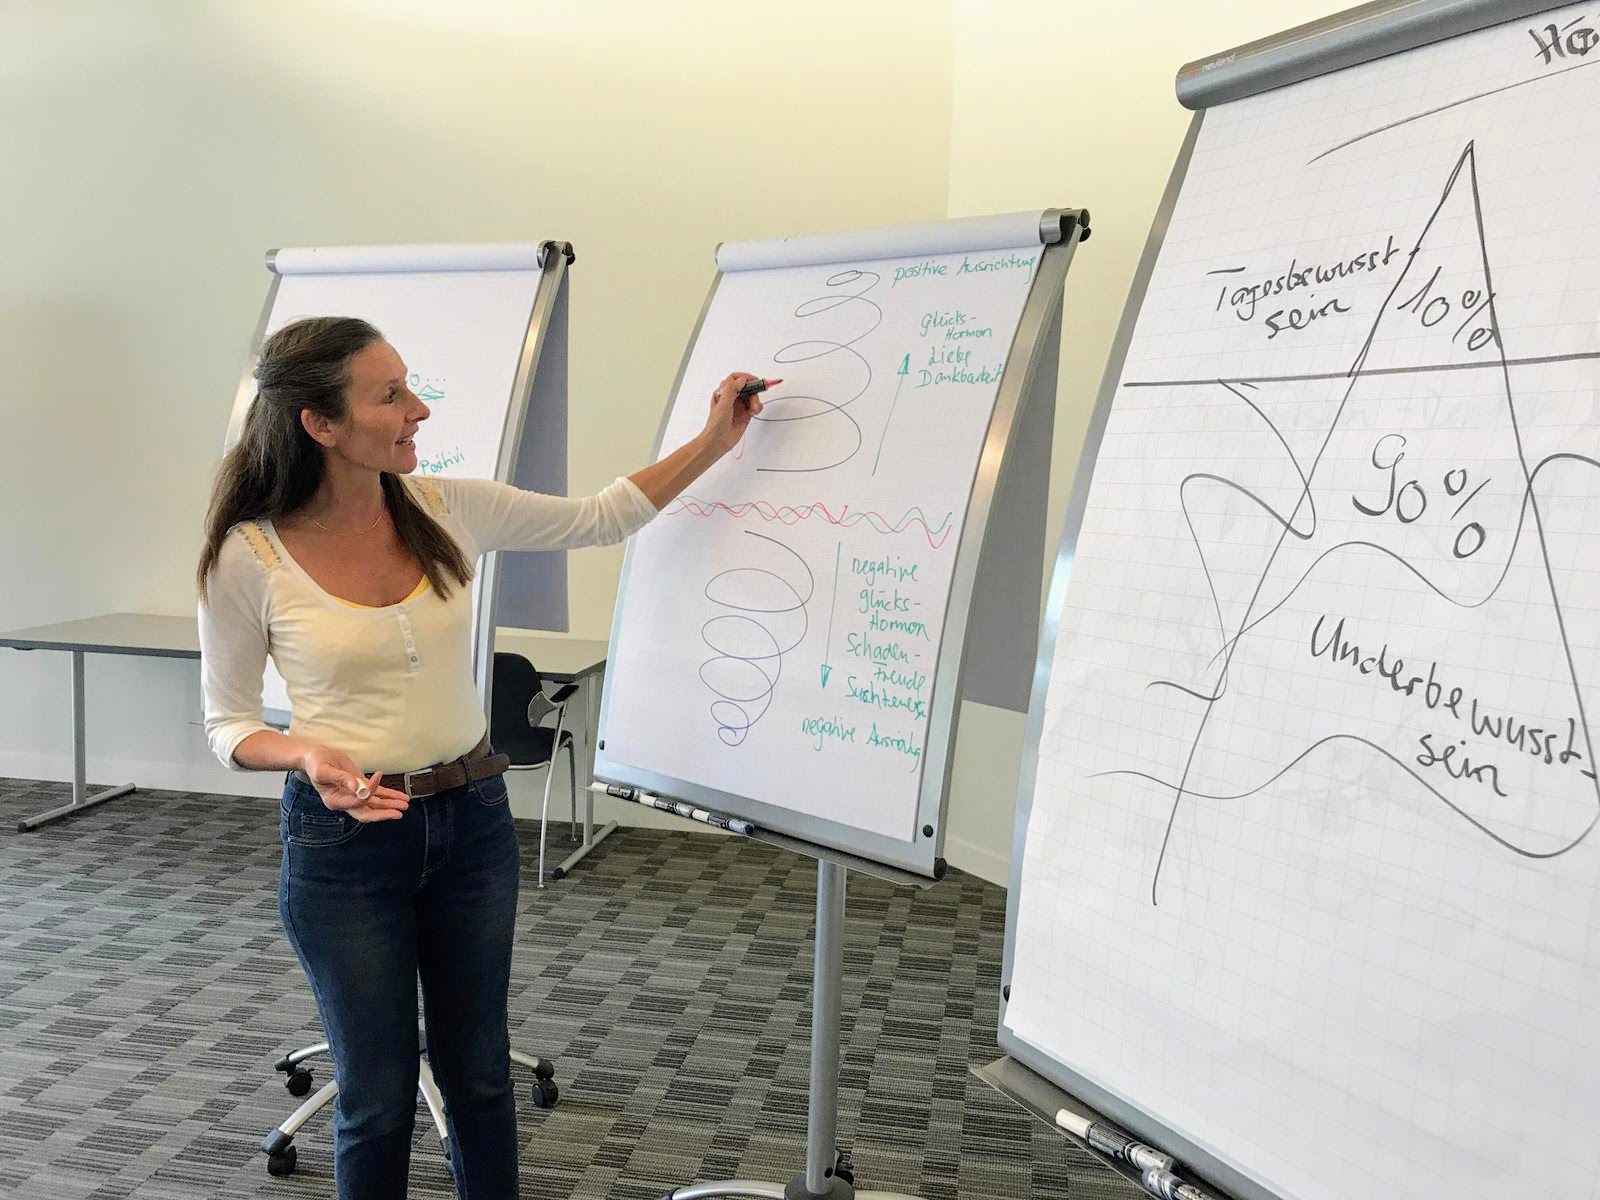 Positivi
positive Ausrichtung
Glücks-
Hormon
Liebe
Dankbarkeit
negative
glücks-
Hormon
Schaden-
freude
negative
neuland
Tagesbewusst-
sein
10%
90%
Underbewusst-
sein